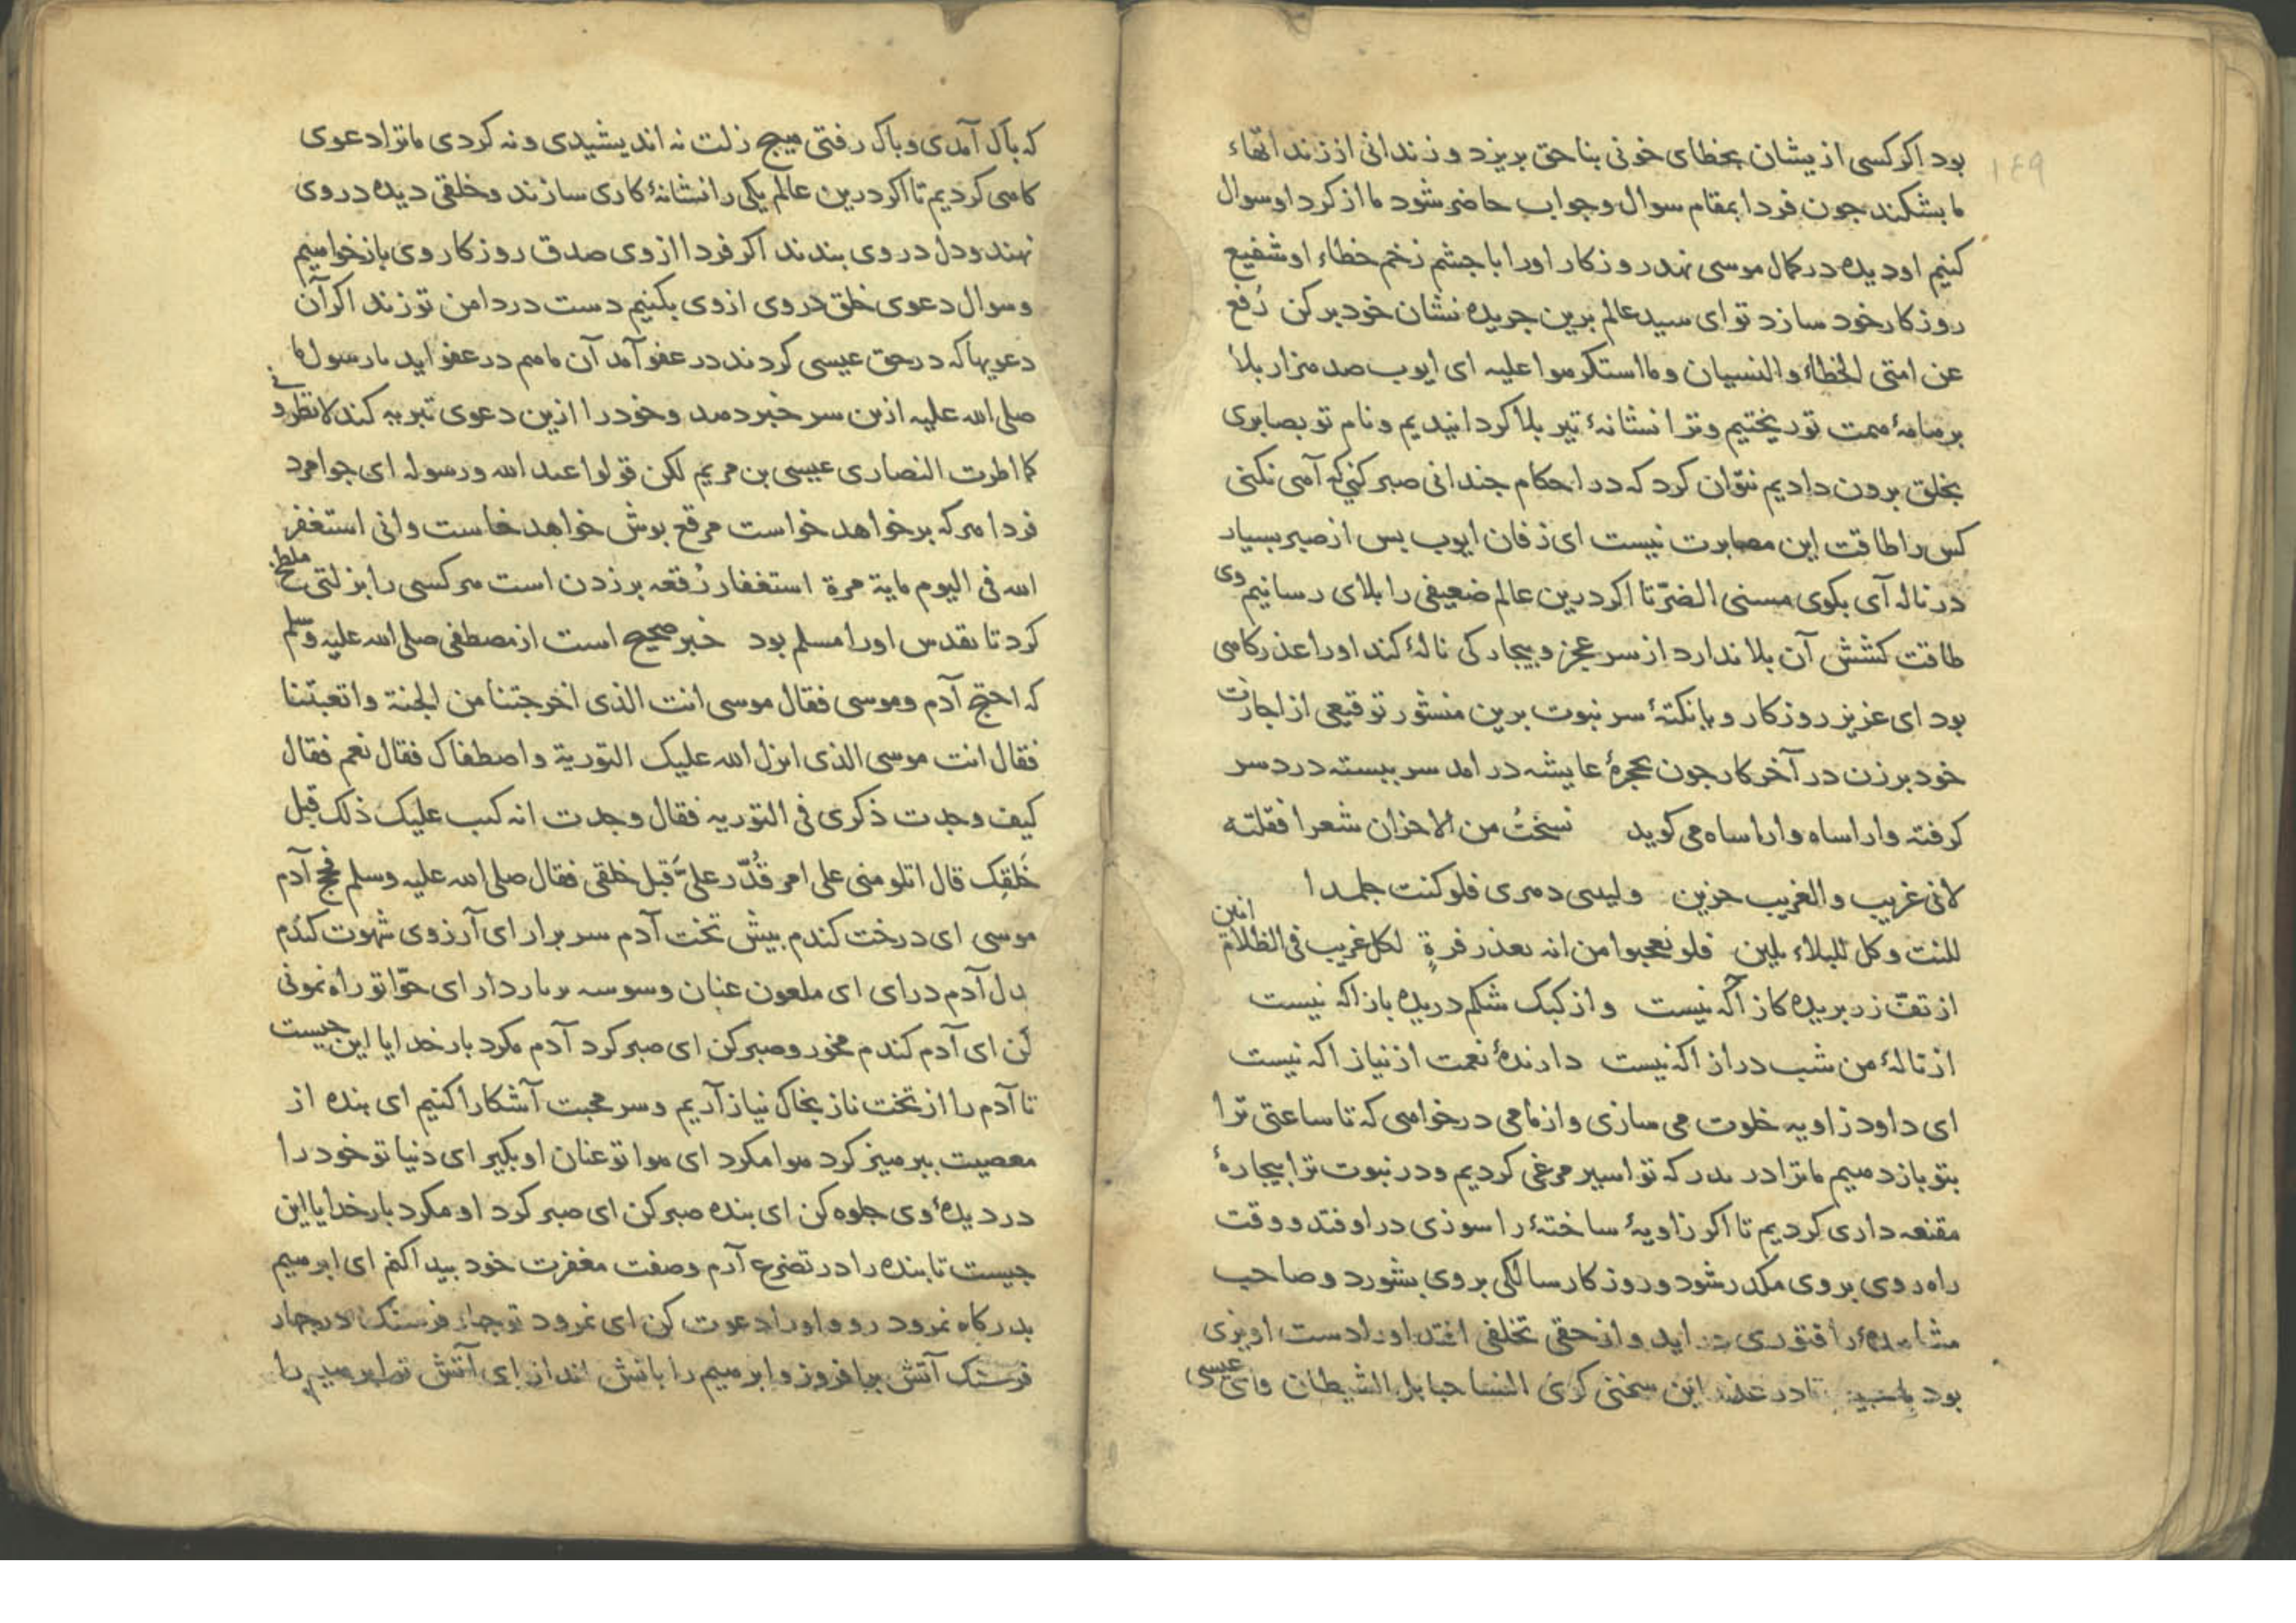 ۱۴۹
بود اکر کسی ازیشان بخطای خونی بناحق بریزد و زندانی از زنداتهاء
ما بشکند جون فردا بمقام سوال و جواب حاضر شود ما از کرد او سوال
کنیم او دیده در کمال موسی نهد روزکار اورا با جشم زخم خطاء او شفیع
روزکار خود سازد تو ای سید عالم برین جریده نشان خود برکن رُفع
عن امتی الخطاء والنسیان وما استکرهوا علیه ای ایوب صد هزار بلا
بر هامهٔ همت تو ریختیم و ترا نشانهٔ تیر بلا کردانیدیم و نام تو بصابری
بخلق برون دادیم نتوّان کرد که در احکام جندانی صبر کنی که آهی نکنی
کس را طاقت این مصابرت نیست ای زفان ایوب بس از صبر بسیار
در ناله آی بکوی مسنی الضرّ تا اکر درین عالم ضعیفی را بلای رسانیم وی
طاقت کشش آن بلا ندارد از سر عجز و بیجارکی نالهٔ کند اورا عذرکاهی
بود ای عزیز روزکار و یا نکتهٔ سر نبوت برین منشور توقیعی از اجازت
خود برزن در آخر کار جون بحجرهٔ عایشه در امد سر ببسته درد سر
کرفته وا راساه وا راساه می کوید نسَجْتُ من الاحزان شعرا فقلته
لانی غریب والغریب حزین ولیسی دهری فلو کنت جلمدا
للنت وکل للبلاء یلین فلو تعجبوا من انه بعذر فرةٍ لکل غریب فی الظلام انین
از تفّ زر بریده کاز آکه نیست و از کبک شکم دریده باز اکه نیست
از نالهٔ من شب دراز اکه نیست دارندهٔ نعمت از نیاز اکه نیست
ای داود زاویه خلوت می سازی و از ما می درخواهی که تا ساعتی ترا
بتو باز دهیم ما ترا در بدر که تو اسیر مرغی کردیم و در نبوت ترا بیجارهٔ
مقنعه داری کردیم تا اکر زاویهٔ ساختهٔ را سوزی در اوفتد و وقت
راه روی بر وی مکدر شود و روزکار سالکی بر وی بشورد و صاحب
مشاهدهٔ را فتوری در اید و از حقی تخلفی افتد اورا دست اویزی
بود تا در عذر این سخنی کری النسا حبایل الشیطان و ای عیسی
که باک آمدی و باک رفتی هیج زلت نه اندیشیدی و نه کردی ما ترا دعوی
کاهی کردیم تا اکر درین عالم یکی را نشانهٔ کاری سازند و خلقی دیده در وی
نهند و دل در وی بندند اکر فردا از وی صدق روزکار وی باز خواهیم
و سوال دعوی خلق در وی از وی بکنیم دست در دامن تو زند اکر آن
دعویها که در حق عیسی کردند در عفو آمد آن ما هم در عفو اید یا رسول ما
صلی الله علیه ازین سر خبر دهد و خود را ازین دعوی تبریه کند لا تطرونی
کما اطرت النصاری عیسی بن مریم لکن قولوا عبد الله ورسوله ای جوامرد
فردا هر که بر خواهد خواست مرقع بوش خواهد خاست وانی استغفر
الله فی الیوم مایة مرة استغفار رُقعه بر زدن است هر کسی را بزلتی ملطخ
کرد تا تقدس اورا مسلم بود خبر صحیح است از مصطفی صلی الله علیه وسلم
که احتج آدم وموسی فقال موسی انت الذی اخرجتنا من الجنة واتعبتنا
فقال انت موسی الذی انزل الله علیک التوریة واصطفاک فقال نعم فقال
کیف وجدت ذکری فی التوریه فقال وجدت انه کتب علیک ذلک قبل
خَلقِک قال اتلومنی علی امر قُدّر علیَّ قبل خلقی فقال صلی الله علیه وسلم فحج آدم
موسی ای درخت کندم بیش تخت آدم سر برار ای آرزوی شهوت کندم
بدل آدم درای ای ملعون عنان وسوسه بر مار دار ای حوّا تو راه نمونی
کن ای آدم کندم مخور و صبر کن ای صبر کرد آدم مکرد بار خدایا این جیست
تا آدم را از تخت ناز بخاک نیاز آریم و سر محبت آشکارا کنیم ای بنده از
معصیت ببرهیز کرد هوا مکرد ای هوا تو عنان او بکیر ای دنیا تو خود را
در دیدهٔ وی جلوه کن ای بنده صبر کن ای صبر کرد او مکرد بار خدایا این
جیست تا بنده را در تضرع آرم و صفت مغفرت خود بیدا کنم ای ابرهیم
بدرکاه نمرود رو و اورا دعوت کن ای نمرود تو جهار فرسنک در جهار
فرسنک آتش برافروز و ابرهیم را باتش انداز ای آتش تو ابرهیم را